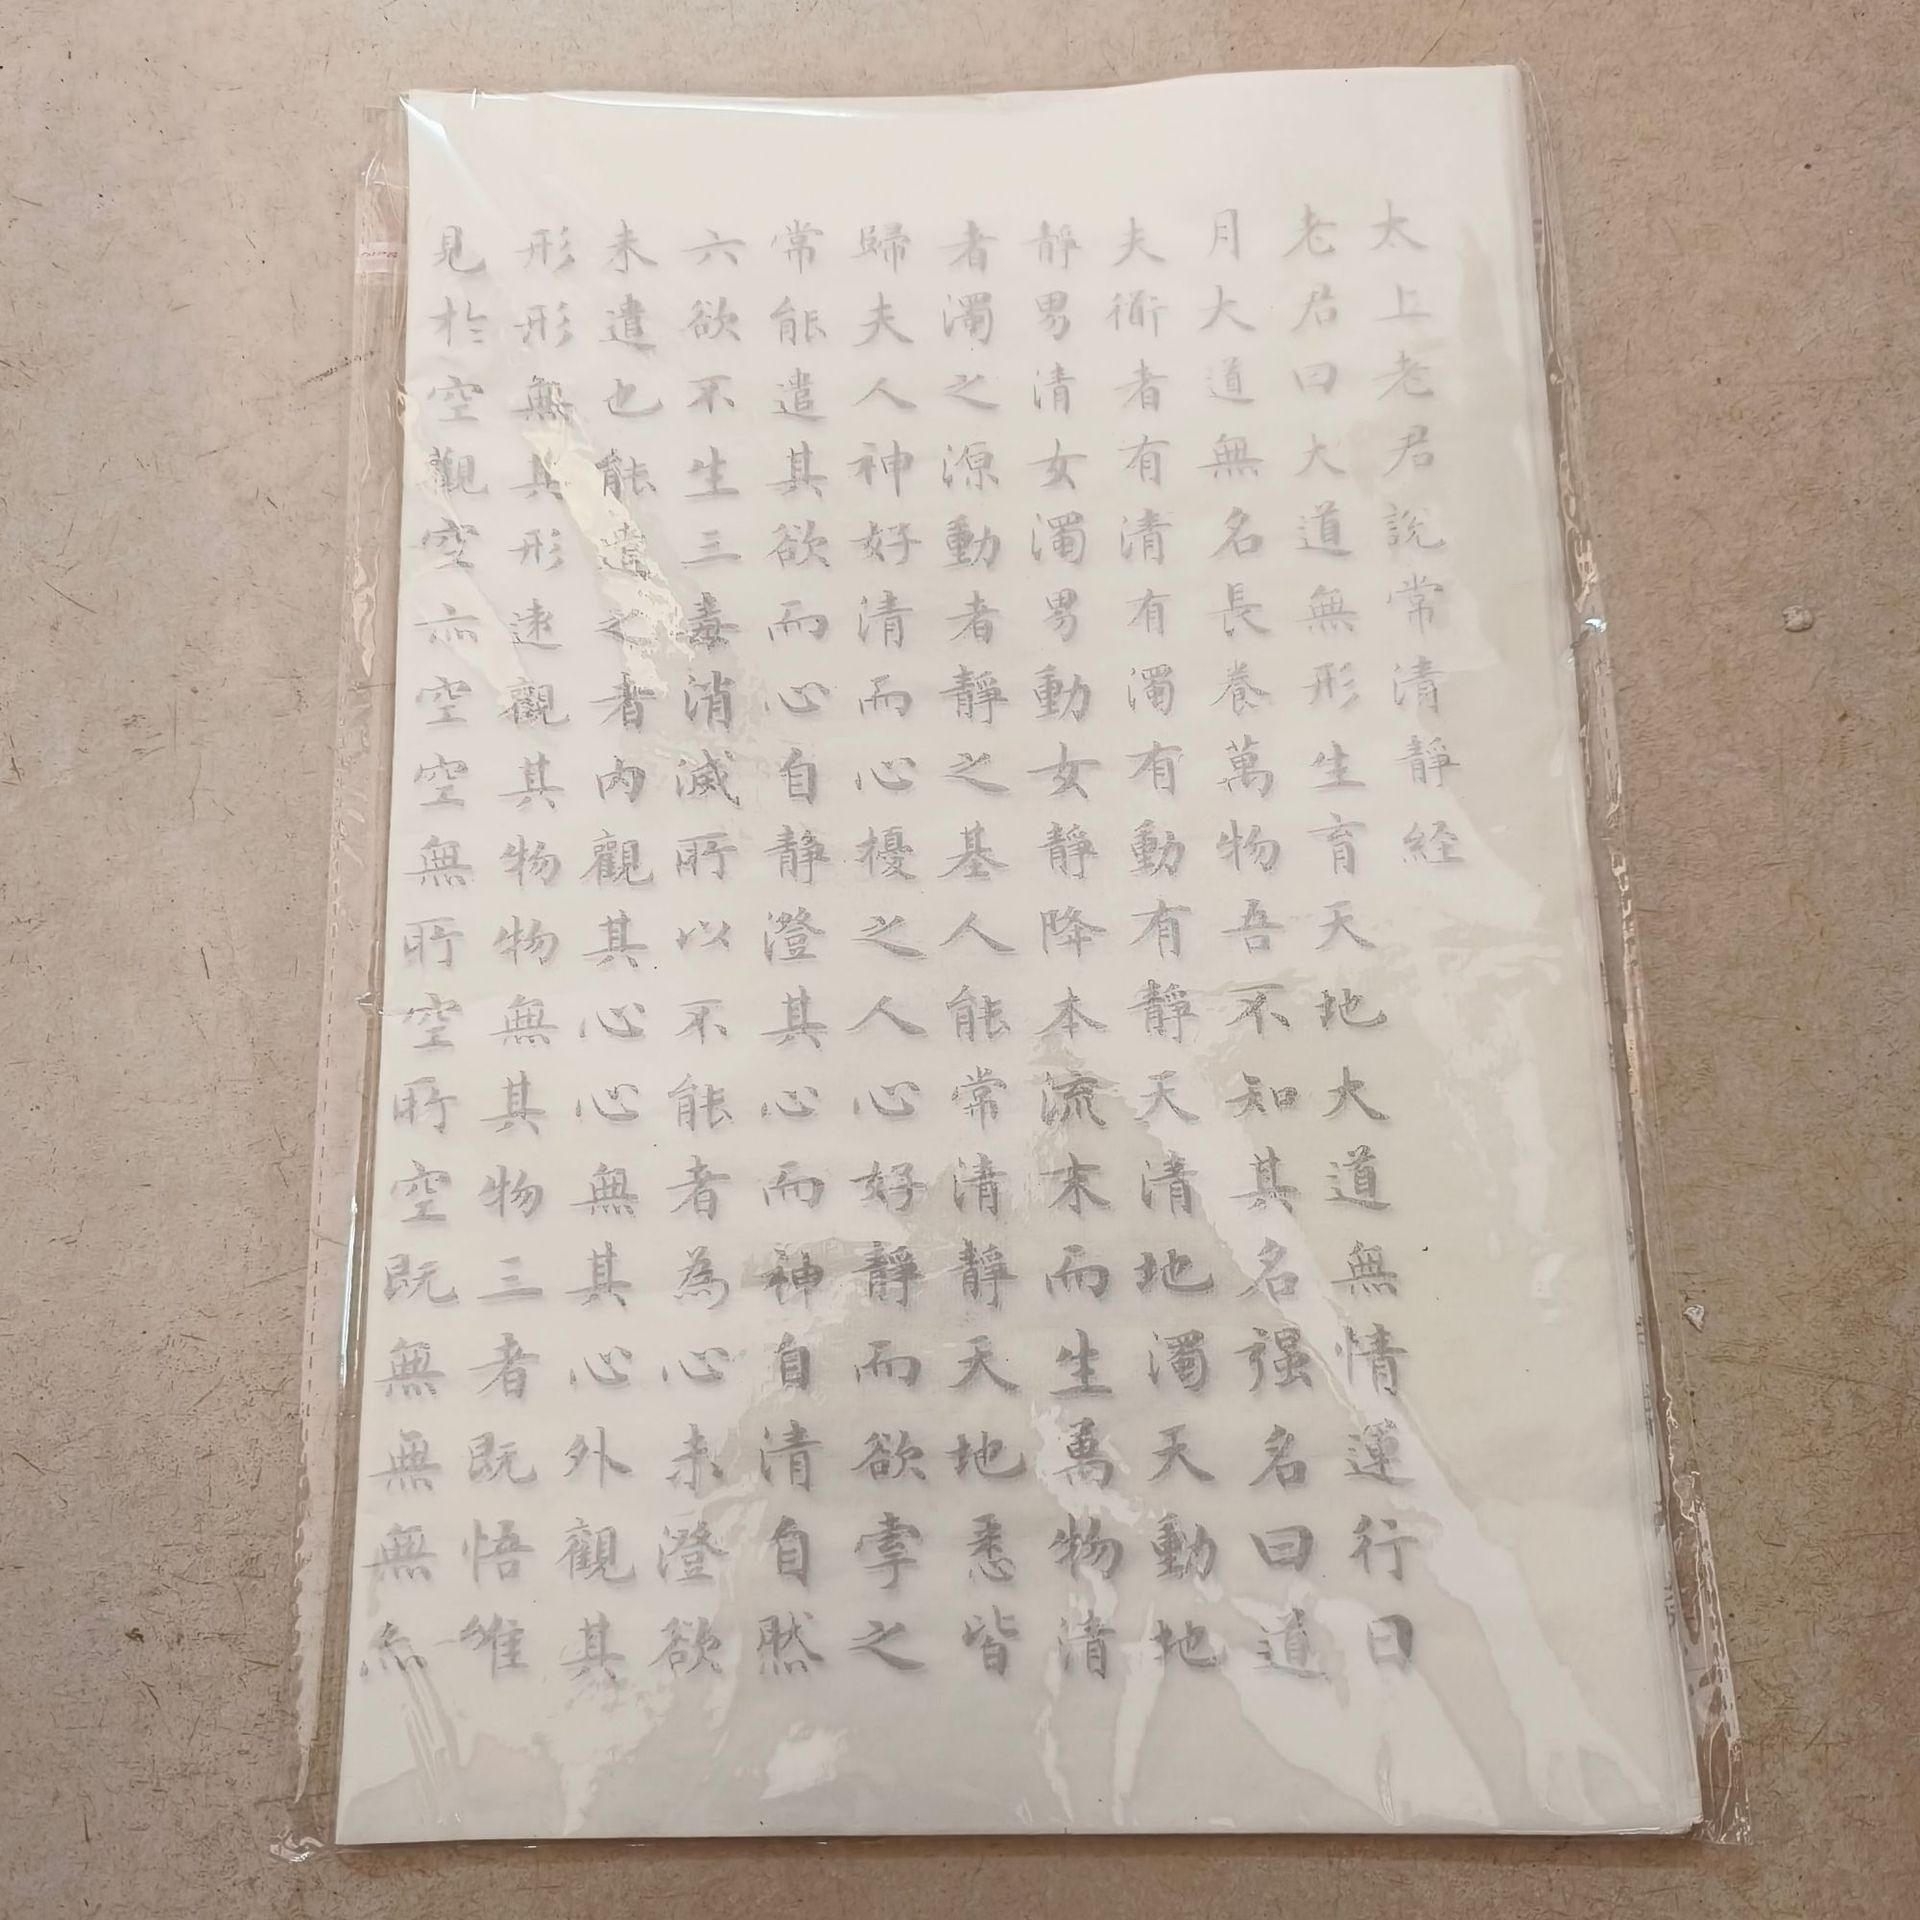 太上老君説常清靜経
老君曰大道無形生育天地大道無情運行日
月大道無名長養萬物吾不知其名强名曰道
夫衜者有清有濁有動有靜天清地濁天動地
靜男清女濁男動女靜降本流末而生萬物清
者濁之源動者靜之基人能常清靜天地悉皆
歸夫人神好清而心擾之人心好靜而欲牽之
常能遣其欲而心自静澄其心而神自清自然
六欲不生三毒消滅所以不能者為心未澄欲
未遣也能遣之者內觀其心心無其心外觀其
形形無其形遠觀其物物無其物三者既悟唯
見於空觀空亦空空無所空所空既無無無亦